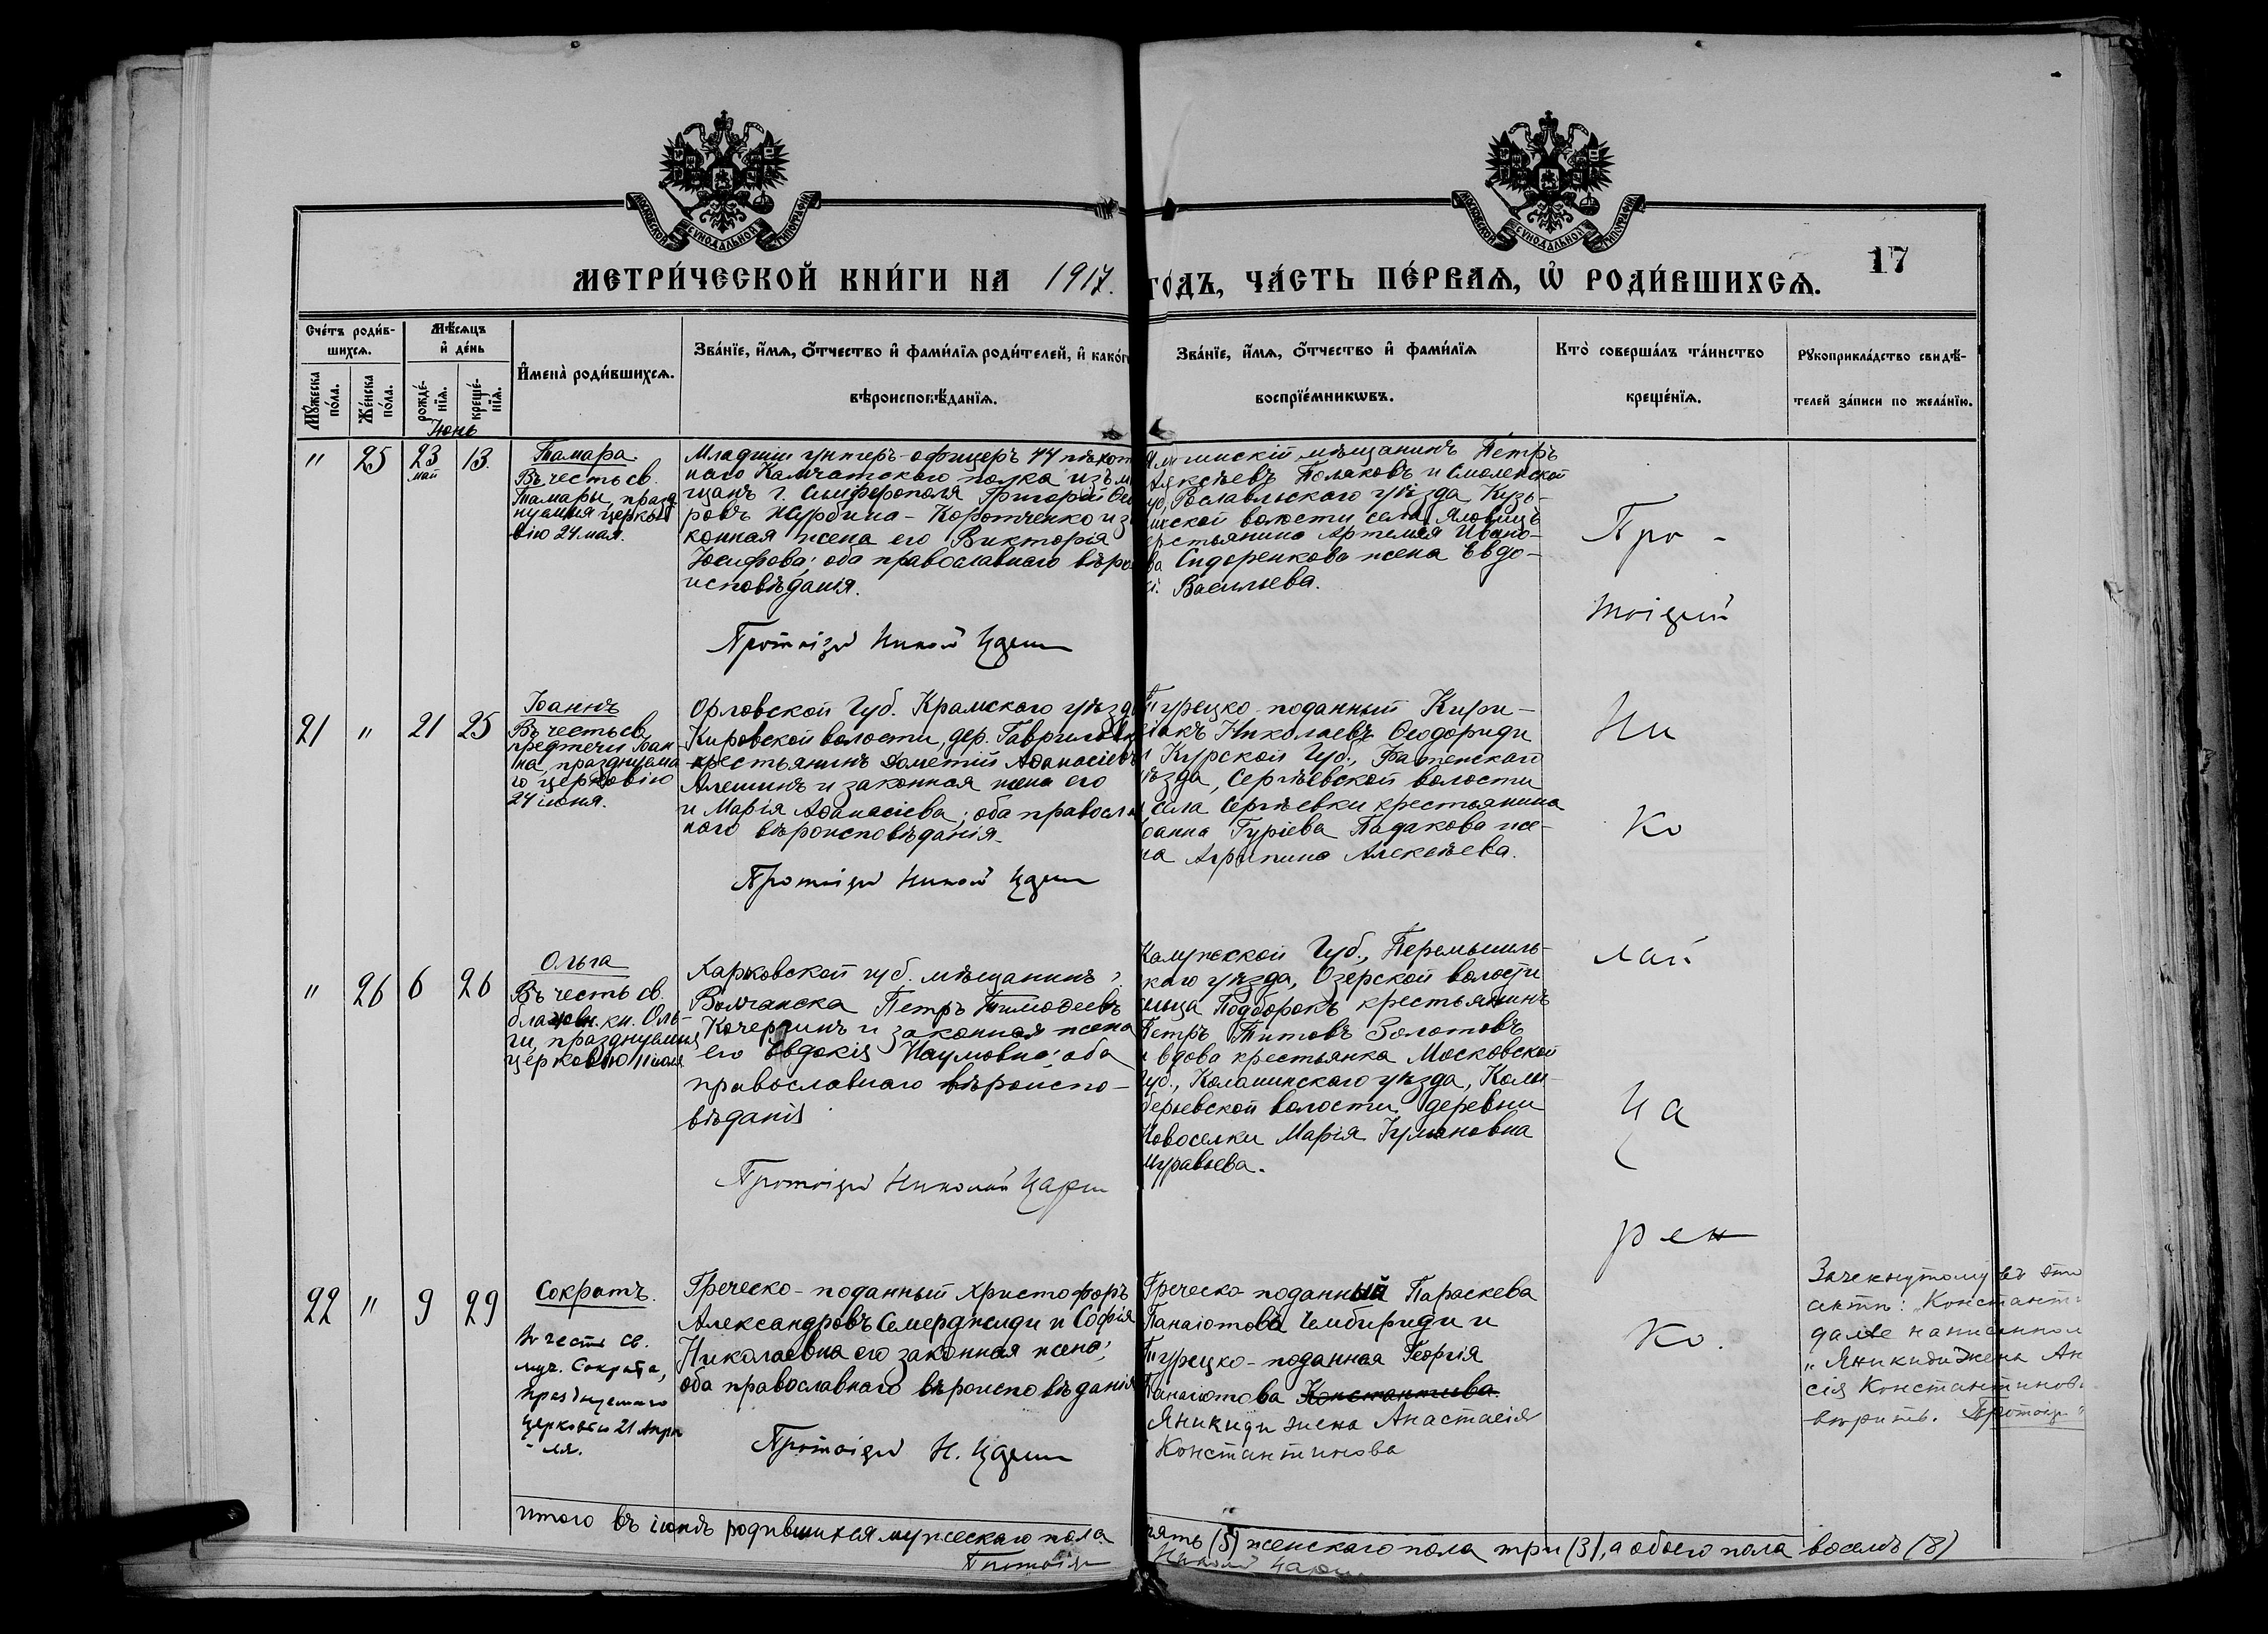 МОСКОВСКОЙ СУНОДАЛЬНОЙ ТИПОГРАФIИ
МОСКОВСКОЙ СУНОДАЛЬНОЙ ТИПОГРАФIИ
17
МЕТРИ́ЧЕСКОЙ КНИ́ГИ НА 1917.
ГО́ДЪ, ЧА́СТЬ ПЕ́РВАѦ, Ѡ҆ РОДИ́ВШИХСѦ.
Сче́тъ роди́в-
шихсѧ.
Мꙋ́жеска по́ла.
Же́нска по́ла.
Мѣ́сѧцъ
и҆ де́нь
рожде́-
нїѧ.
креще́-
нїѧ.
И҆мена̀ роди́вшихсѧ.
Зва́нїе, и҆́мѧ, ѻ҆́тчество и҆ фами́лїѧ роди́телей, и҆ како́г
вѣроисповѣ́данїѧ.
Зва́нїе, и҆́мѧ, ѻ҆́тчество и҆ фами́лїѧ
воспрїе́мникѡвъ.
Кто̀ соверша́лъ та́инство
креще́нїѧ.
Рꙋкоприкла́дство свидѣ́-
телей за́писи по жела́нїю.
Июнь
" 25 23 май 13.
Тамара
Въ честь св.
Тамары, празд
нуемыя церко
вію 24 мая.
Младшій унтеръ-офицеръ 44 пѣхот
наго Камчатскаго полка изъ м
щанъ г. Симферополя Григорій Ѳео
ровъ Журбина-Коротченко и з
конная жена его Викторія
Іосифова; оба православнаго вѣро
исповѣданія.
Протоіерей Николай Царен
мѣщанинъ Петръ
Алексѣевъ Поляковъ и Смоленской
губ, Рославльскаго уѣзда Кузь-
волости села
крестьянина Артемія Ивано-
ва Сидоренкова жена Евдо-
кі. Васильева.
21 " 21 25
Іоаннъ
Въ честь св.
предтечи Іоан-
на, празднуема
го церковію
24 іюня.
Орловской Губ. Крамского уѣзда
Кировской волости, дер. Гавриловк
крестьянинъ Дометій Аѳанасіевъ
Алешинъ и законная жена его
и Марія Аѳанасіева; оба правосла
наго вѣроисповѣданія.
Протоіерей Николай Царен
Турецко-поданный Кири-
іакъ Николаевъ Ѳеодориди
и Курской Губ., Фатежскаго
ѣзда, Сергѣевской волости
села Сергѣевки крестьянина
оанна Гуріева Падакова же-
на Агрипина Алексѣева.
" 26 6 26
Ольга
Въ честь св.
благовѣ. кн. Оль-
ги, празднуемыя
церковію 11 іюля
Харьковской губ. мѣщанинъ г.
Волчанска Петръ Тимоѳеевъ
Кочергинъ и законная жена
его Евдокія Наумовна; оба
православнаго вѣроиспо-
вѣданія
Протоіерей Николай Царен
Калужской Губ., Перемышль-
каго уѣзда, Озерской волости
ельца Подборокъ крестьянинъ
Петръ Титовъ Золотовъ
и вдова крестьянка Московской
губ., Коломинскаго уѣзда, Колы-
беревской волости, деревни
Новоселки Марія
Муравьева.
22 " 9 29
Сократъ.
Въ честь св.
муч. Сократа,
празднуемаго
церковью 21 Апрѣ
-ля.
Греческо-поданный Христофоръ
Александровъ Семерджиди и Софія
Николаевна его законная жена;
оба православнаго вѣроисповѣданія
Протоіерей Н. Царен
Греческо-поданный Параскева
Панаіотова Чембириди и
Турецко-поданная Георгія
Панаіотова Константинова
Яникиди жена Анастасія
Константинова
Про-
тоіерей
Ни
ко
лай
Ца
рен
ко.
Зачекнутому въ это
актѣ: „Константи
далѣе написанном
„Яникиди жена Ан
сія Константинов
вѣрить. Протоіер
Итого въ іюнѣ родившихся мужескаго пола
пять (5) женскаго пола три (3), а обоего пола восемь (8)
Протоіерей
Николай Царен